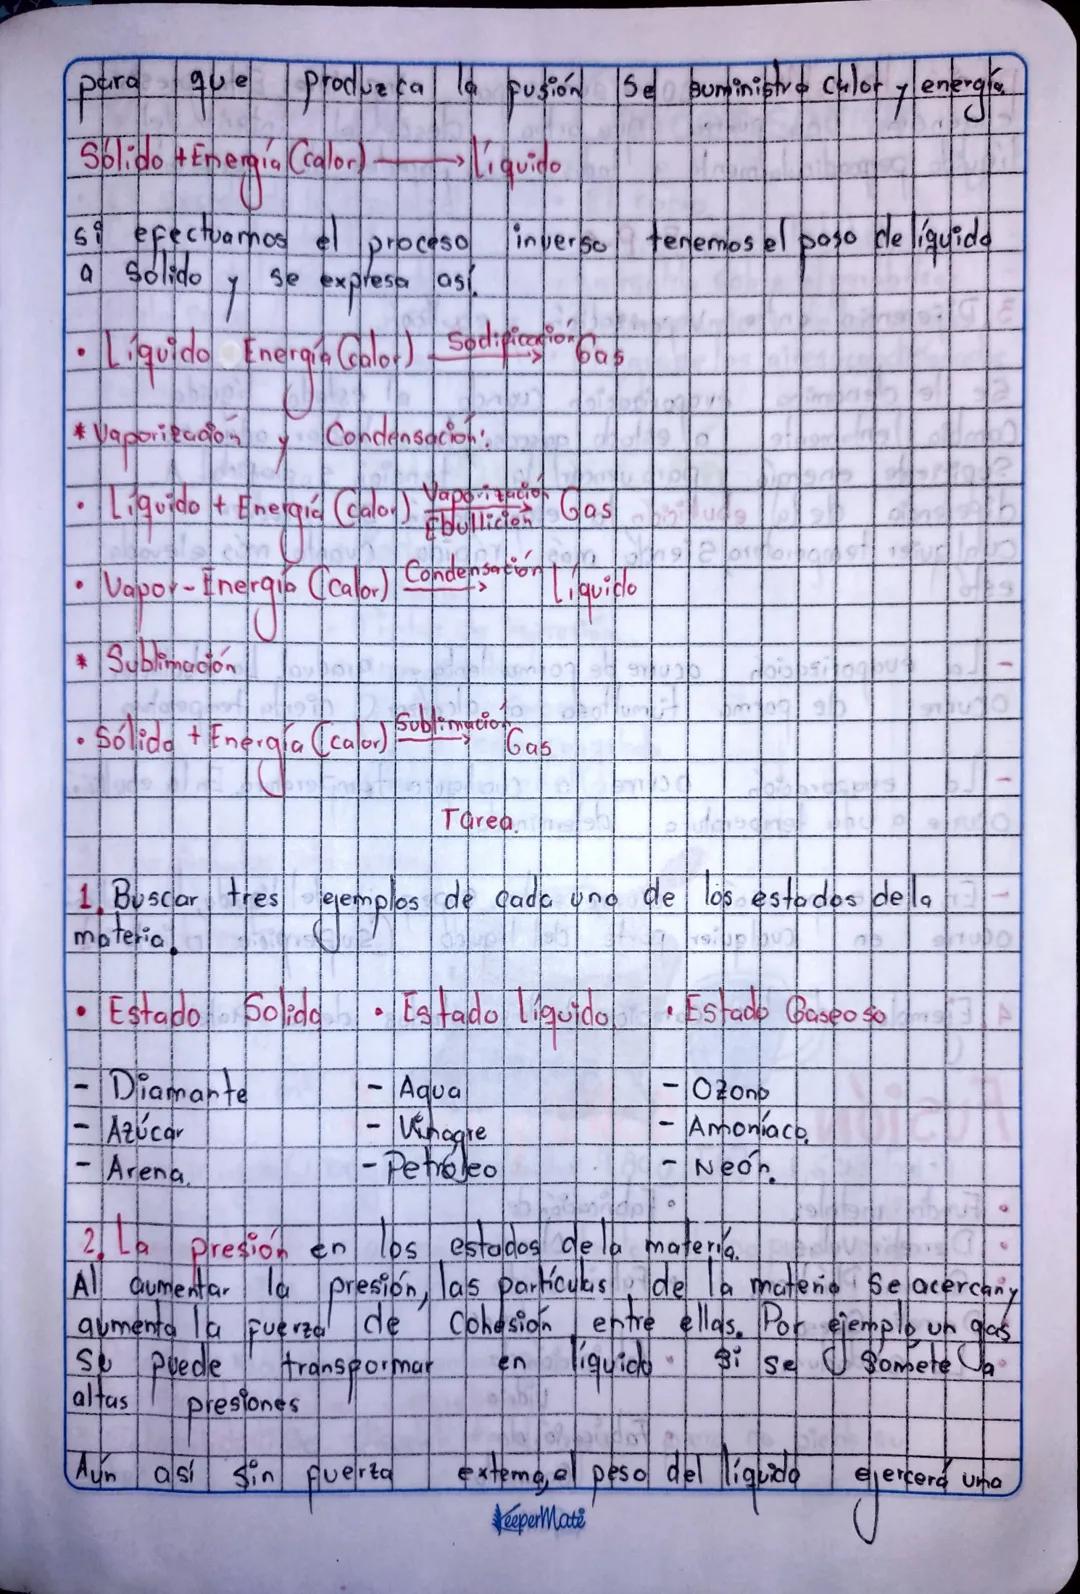 para que produzca la fusión Se suministra calor y energía
Sólido + Energía (calor) → Líquido
si efectuamos el proceso inverso tenemos el paso de líquido
a Solido y se expresa así.
• Líquido Energía (calor) Sodificación → Gas
* Vaporización y Condensación:
• Líquido + Energía (calor) Vaporización Ebullición → Gas
• Vapor - Energía (calor) Condensación → Líquido
* Sublimación
• Sólido + Energía (calor) Sublimación → Gas
Tarea.
1. Buscar tres ejemplos de cada uno de los estados de la
materia.
• Estado Solido • Estado líquido • Estado Gaseoso
- Diamante - Agua - Ozono
- Azúcar - Vinagre - Amoníaco.
- Arena. - Petróleo - Neón.
2. La presión en los estados de la materia.
Al aumentar la presión, las partículas de la materia Se acercan y
aumenta la fuerza de Cohesión entre ellas. Por ejemplo un gas
Se puede transformar en líquido si se Somete a
altas presiones
Aún así sin fuerza externa, el peso del líquido ejercerá una
KeeperMate